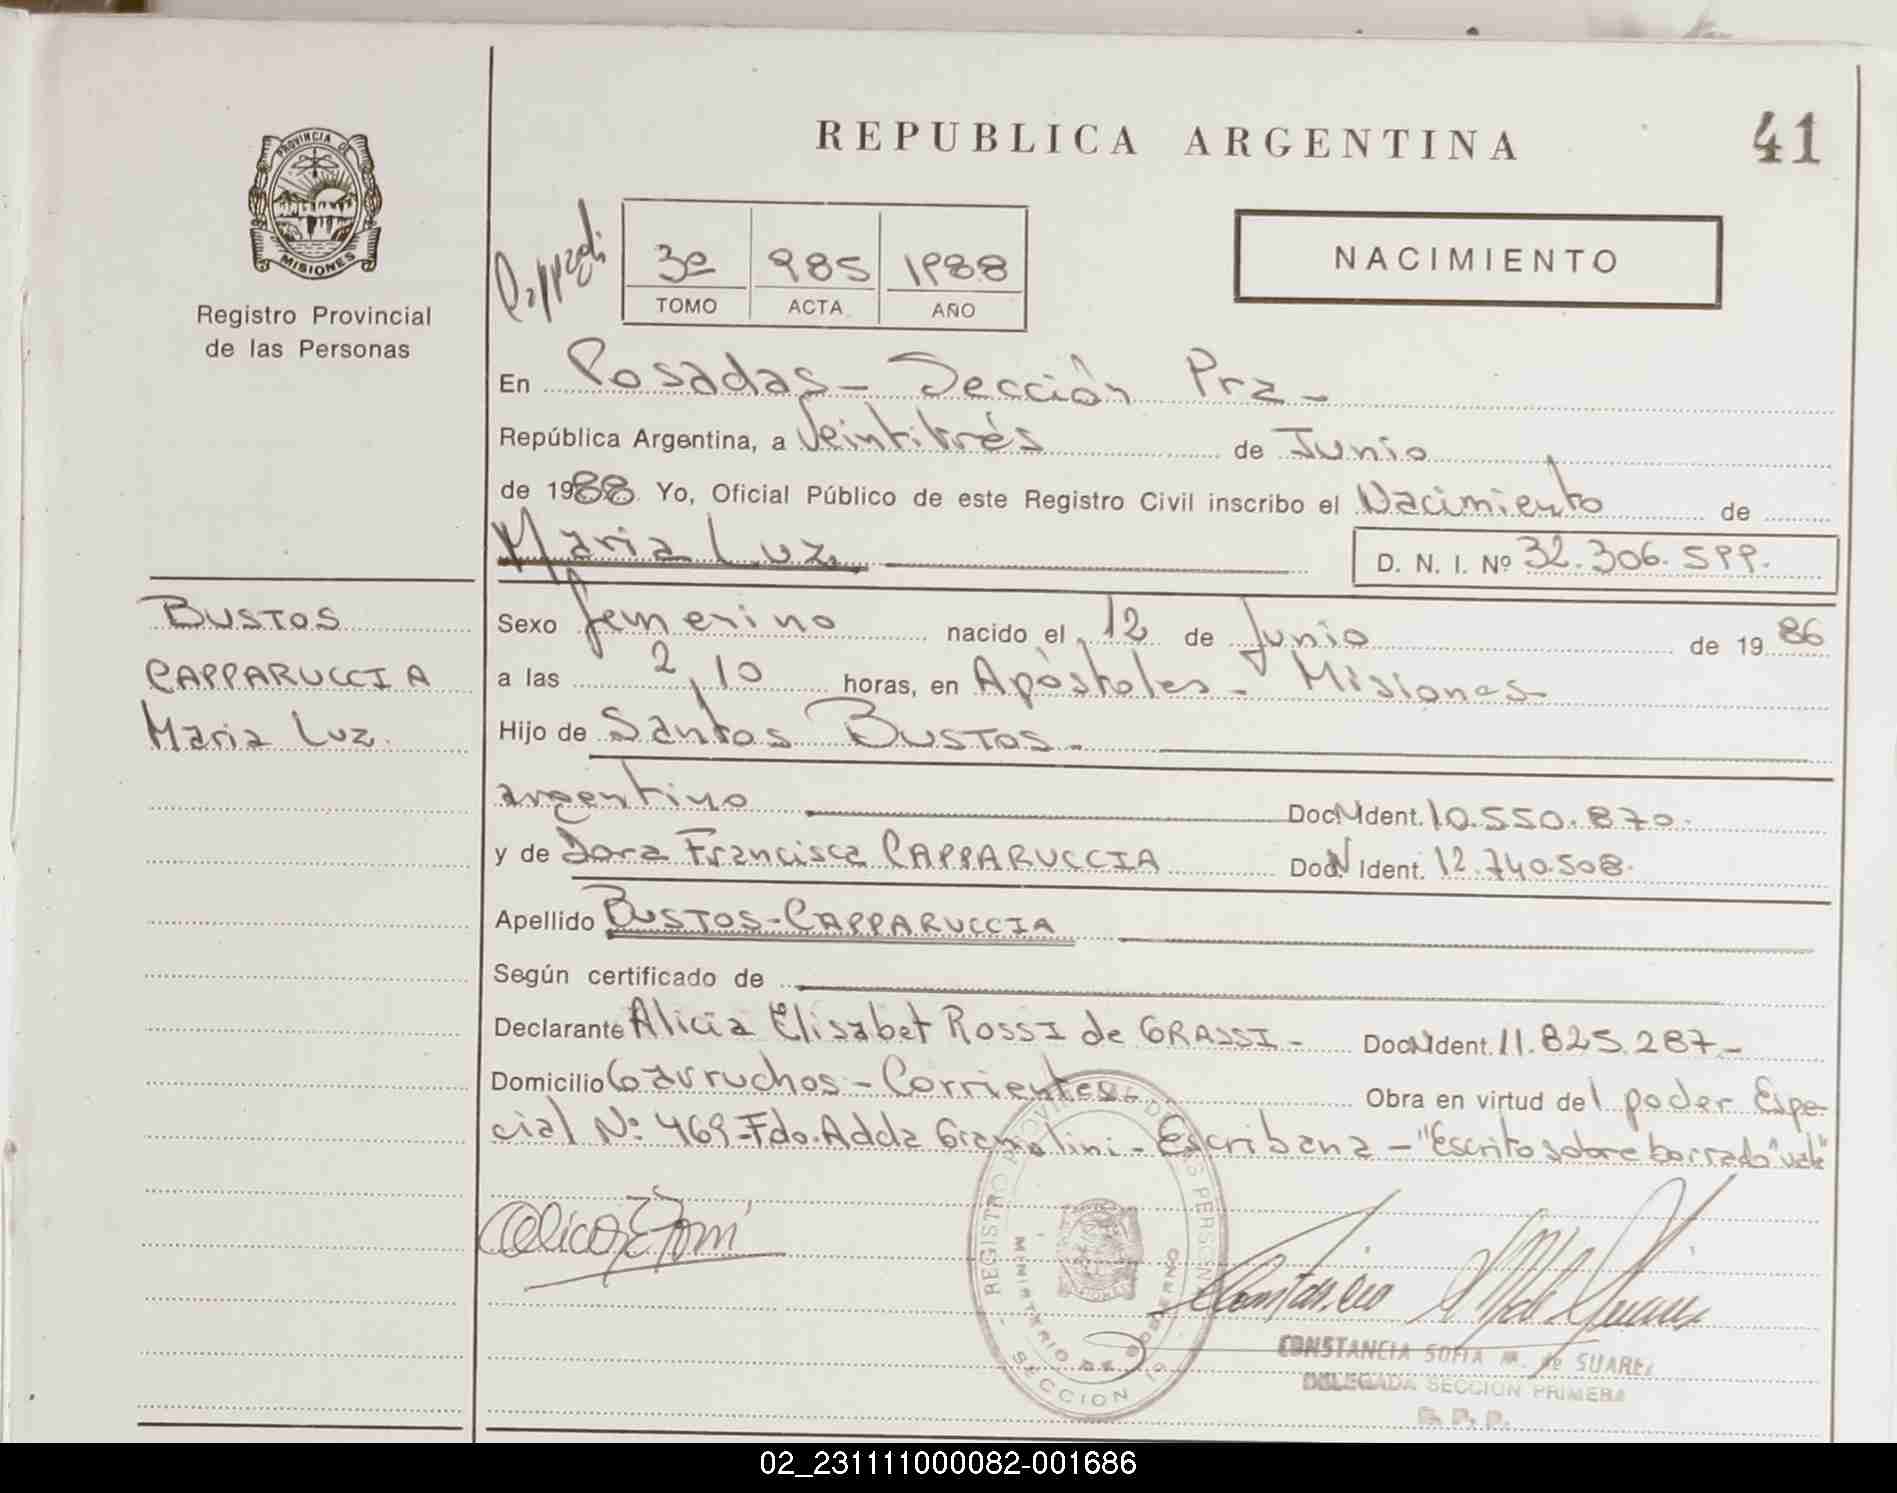 REPUBLICA ARGENTINA
41
PROVINCIA DE
MISIONES
Registro Provincial
de las Personas
3º 985 1988
TOMO ACTA AÑO
NACIMIENTO
En Posadas - Sección Pra -
República Argentina, a Veintitrés de Junio
de 1988. Yo, Oficial Público de este Registro Civil inscribo el Nacimiento de
Maria Luz. D. N. I. Nº 32.306.599.
BUSTOS
CAPPARUCCIA
Maria Luz.
Sexo femenino nacido el 12 de Junio de 19 86
a las 2,10 horas, en Apóstoles - Misiones -
Hijo de Santos BUSTOS -
argentino Doc N Ident. 10.550.870.
y de Dora Francisca CAPPARUCCIA Doc N Ident. 12.740.508.
Apellido BUSTOS-CAPPARUCCIA
Según certificado de
Declarante Alicia Elisabet ROSSI de GRASSI - Doc N Ident. 11.825.287 -
Domicilio Garruchos - Corrientes - Obra en virtud del poder Espe-
cial Nº 469 - Fdo. Adda - Escribana - "Escrito sobre borrado" vale"
REGISTRO PROVINCIAL DE LAS PERSONAS
MINISTERIO DE GOBIERNO
SECCION 1ª
CONSTANCIA SOFIA M. de SUAREZ
DELEGADA SECCION PRIMERA
R. P. P.
02_231111000082-001686